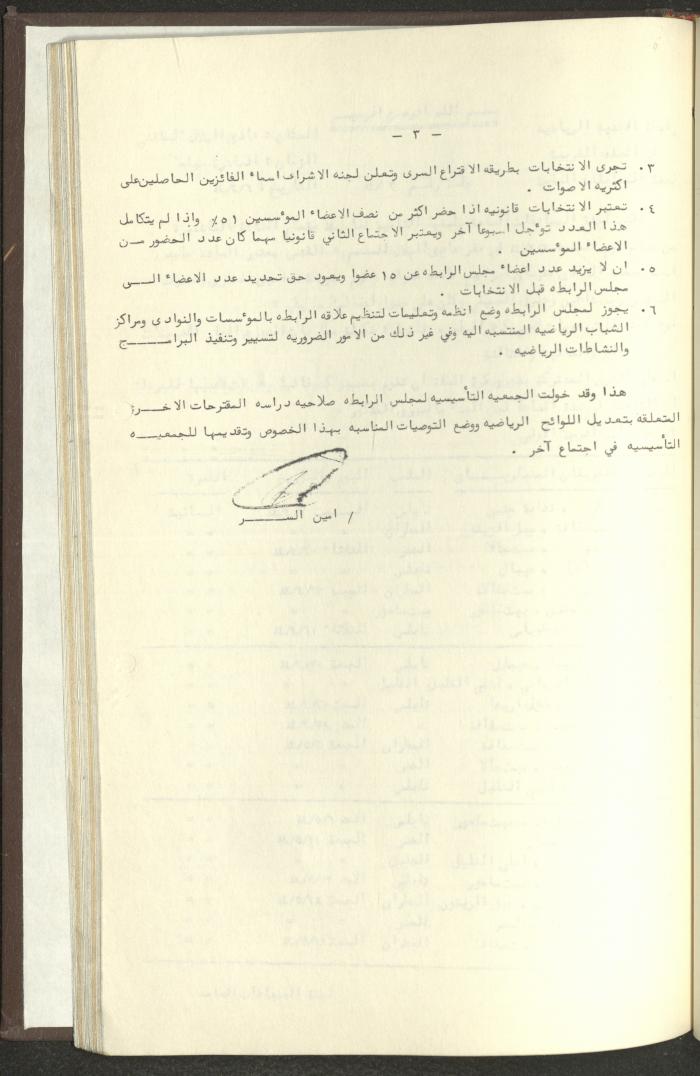 - ٣ -
٣. تجرى الانتخابات بطريقه الاقتراع السرى وتعلن لجنه الاشراف اسماء الفائزين الحاصلين على
اكثريه الاصوات .
٤. تعتبر الانتخابات قانونيه اذا حضر اكثر من نصف الاعضاء المؤسسين ٥١٪ واذا لم يتكامل
هذا العدد توءجل اسبوعا آخر ويعتبر الاجتماع الثاني قانونيا مهما كان عدد الحضور مـن
الاعضاء المؤسسين .
٥. ان لا يزيد عدد اعضاء مجلس الرابطه عن ١٥ عضوا ويعود حق تحديد عدد الاعضاء الـــى
مجلس الرابطه قبل الانتخابات .
٦. يجوز لمجلس الرابطه وضع انظمه وتعليمات لتنظيم علاقه الرابطه بالموءسسات والنوادى ومراكز
الشباب الرياضيه المنتسبه اليه وفي غير ذلك من الامور الضروريه لتسيير وتنفيذ البرامــــج
والنشاطات الرياضيه .
هذا وقد خولت الجمعيه التأسيسيه لمجلس الرابطه صلاحيه دراسه المقترحات الاخـــرى
المتعلقه بتعديل اللوائح الرياضيه ووضع التوصيات المناسبه بهذا الخصوص وتقديمها للجمعيـــه
التأسيسيه في اجتماع آخر .
/ امين الســــر